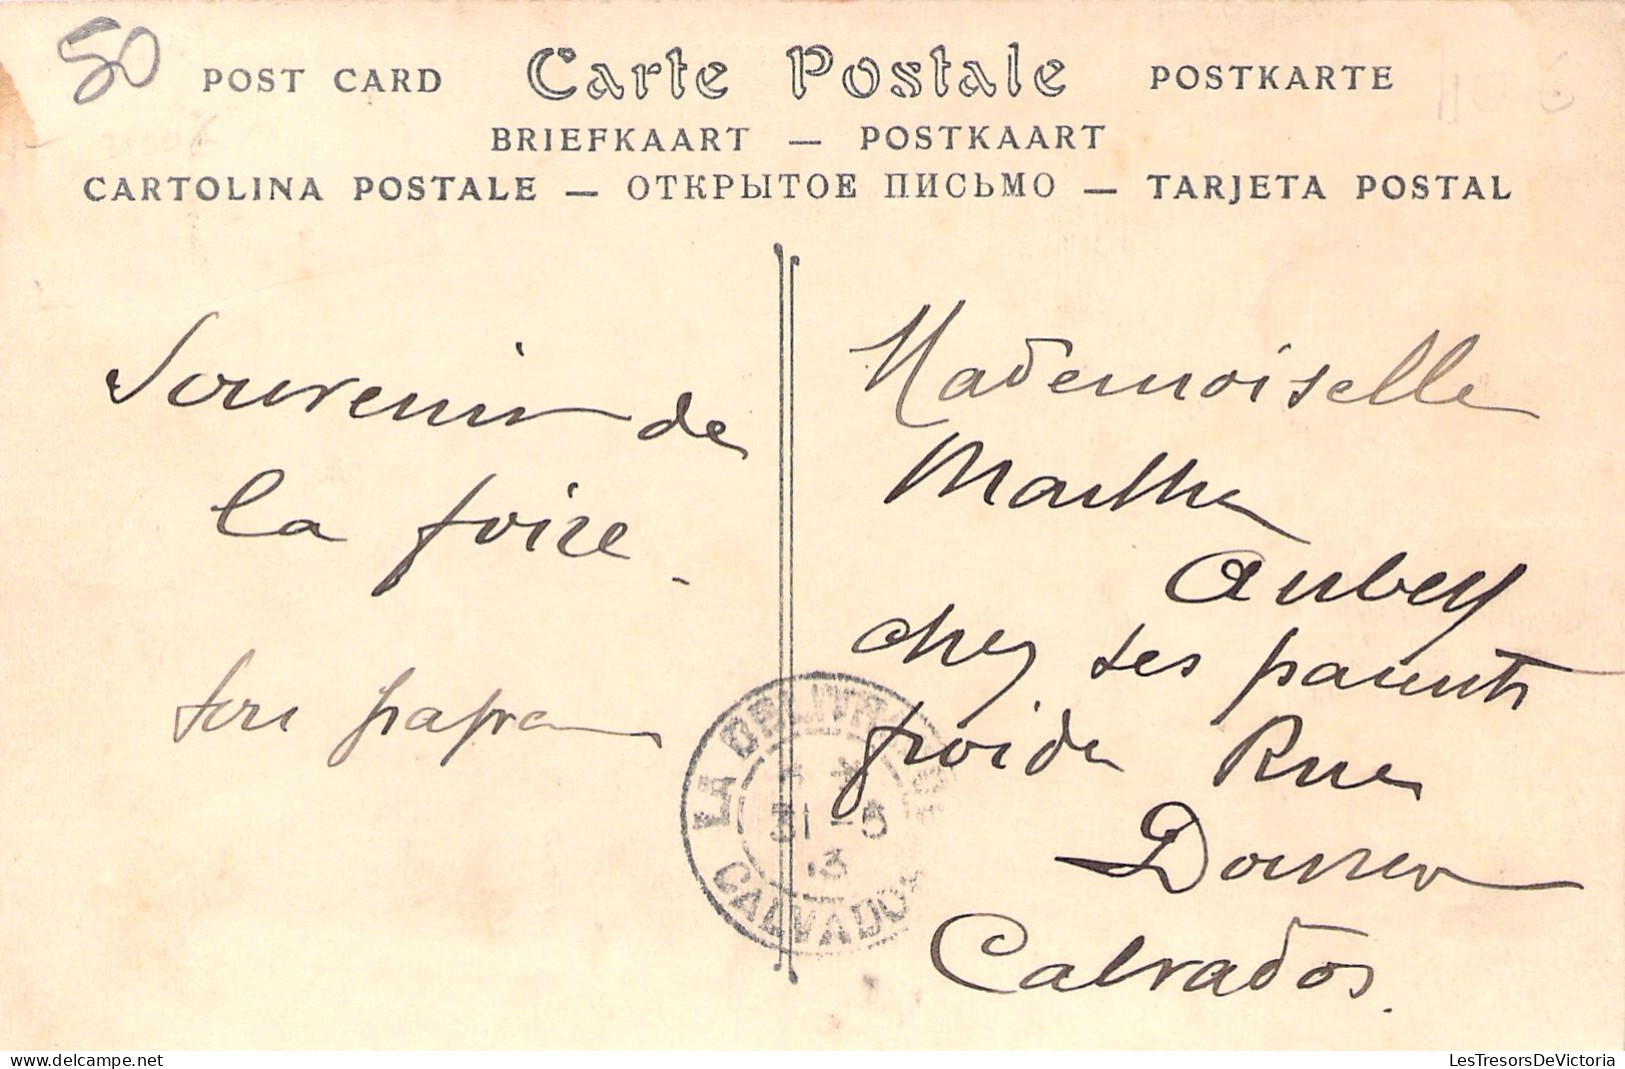 50
POST CARD Carte Postale POSTKARTE
BRIEFKAART — POSTKAART
CARTOLINA POSTALE — ОТКРЫТОЕ ПИСЬМО — TARJETA POSTAL
Souvenir de
la foire.
ton papa
Mademoiselle
Marthe
Aubey
chez ses parents
froide Rue
Calvados.
LA DELIVRANDE
31-5
13
CALVADOS
delcampe.net
LesTresorsDeVictoria